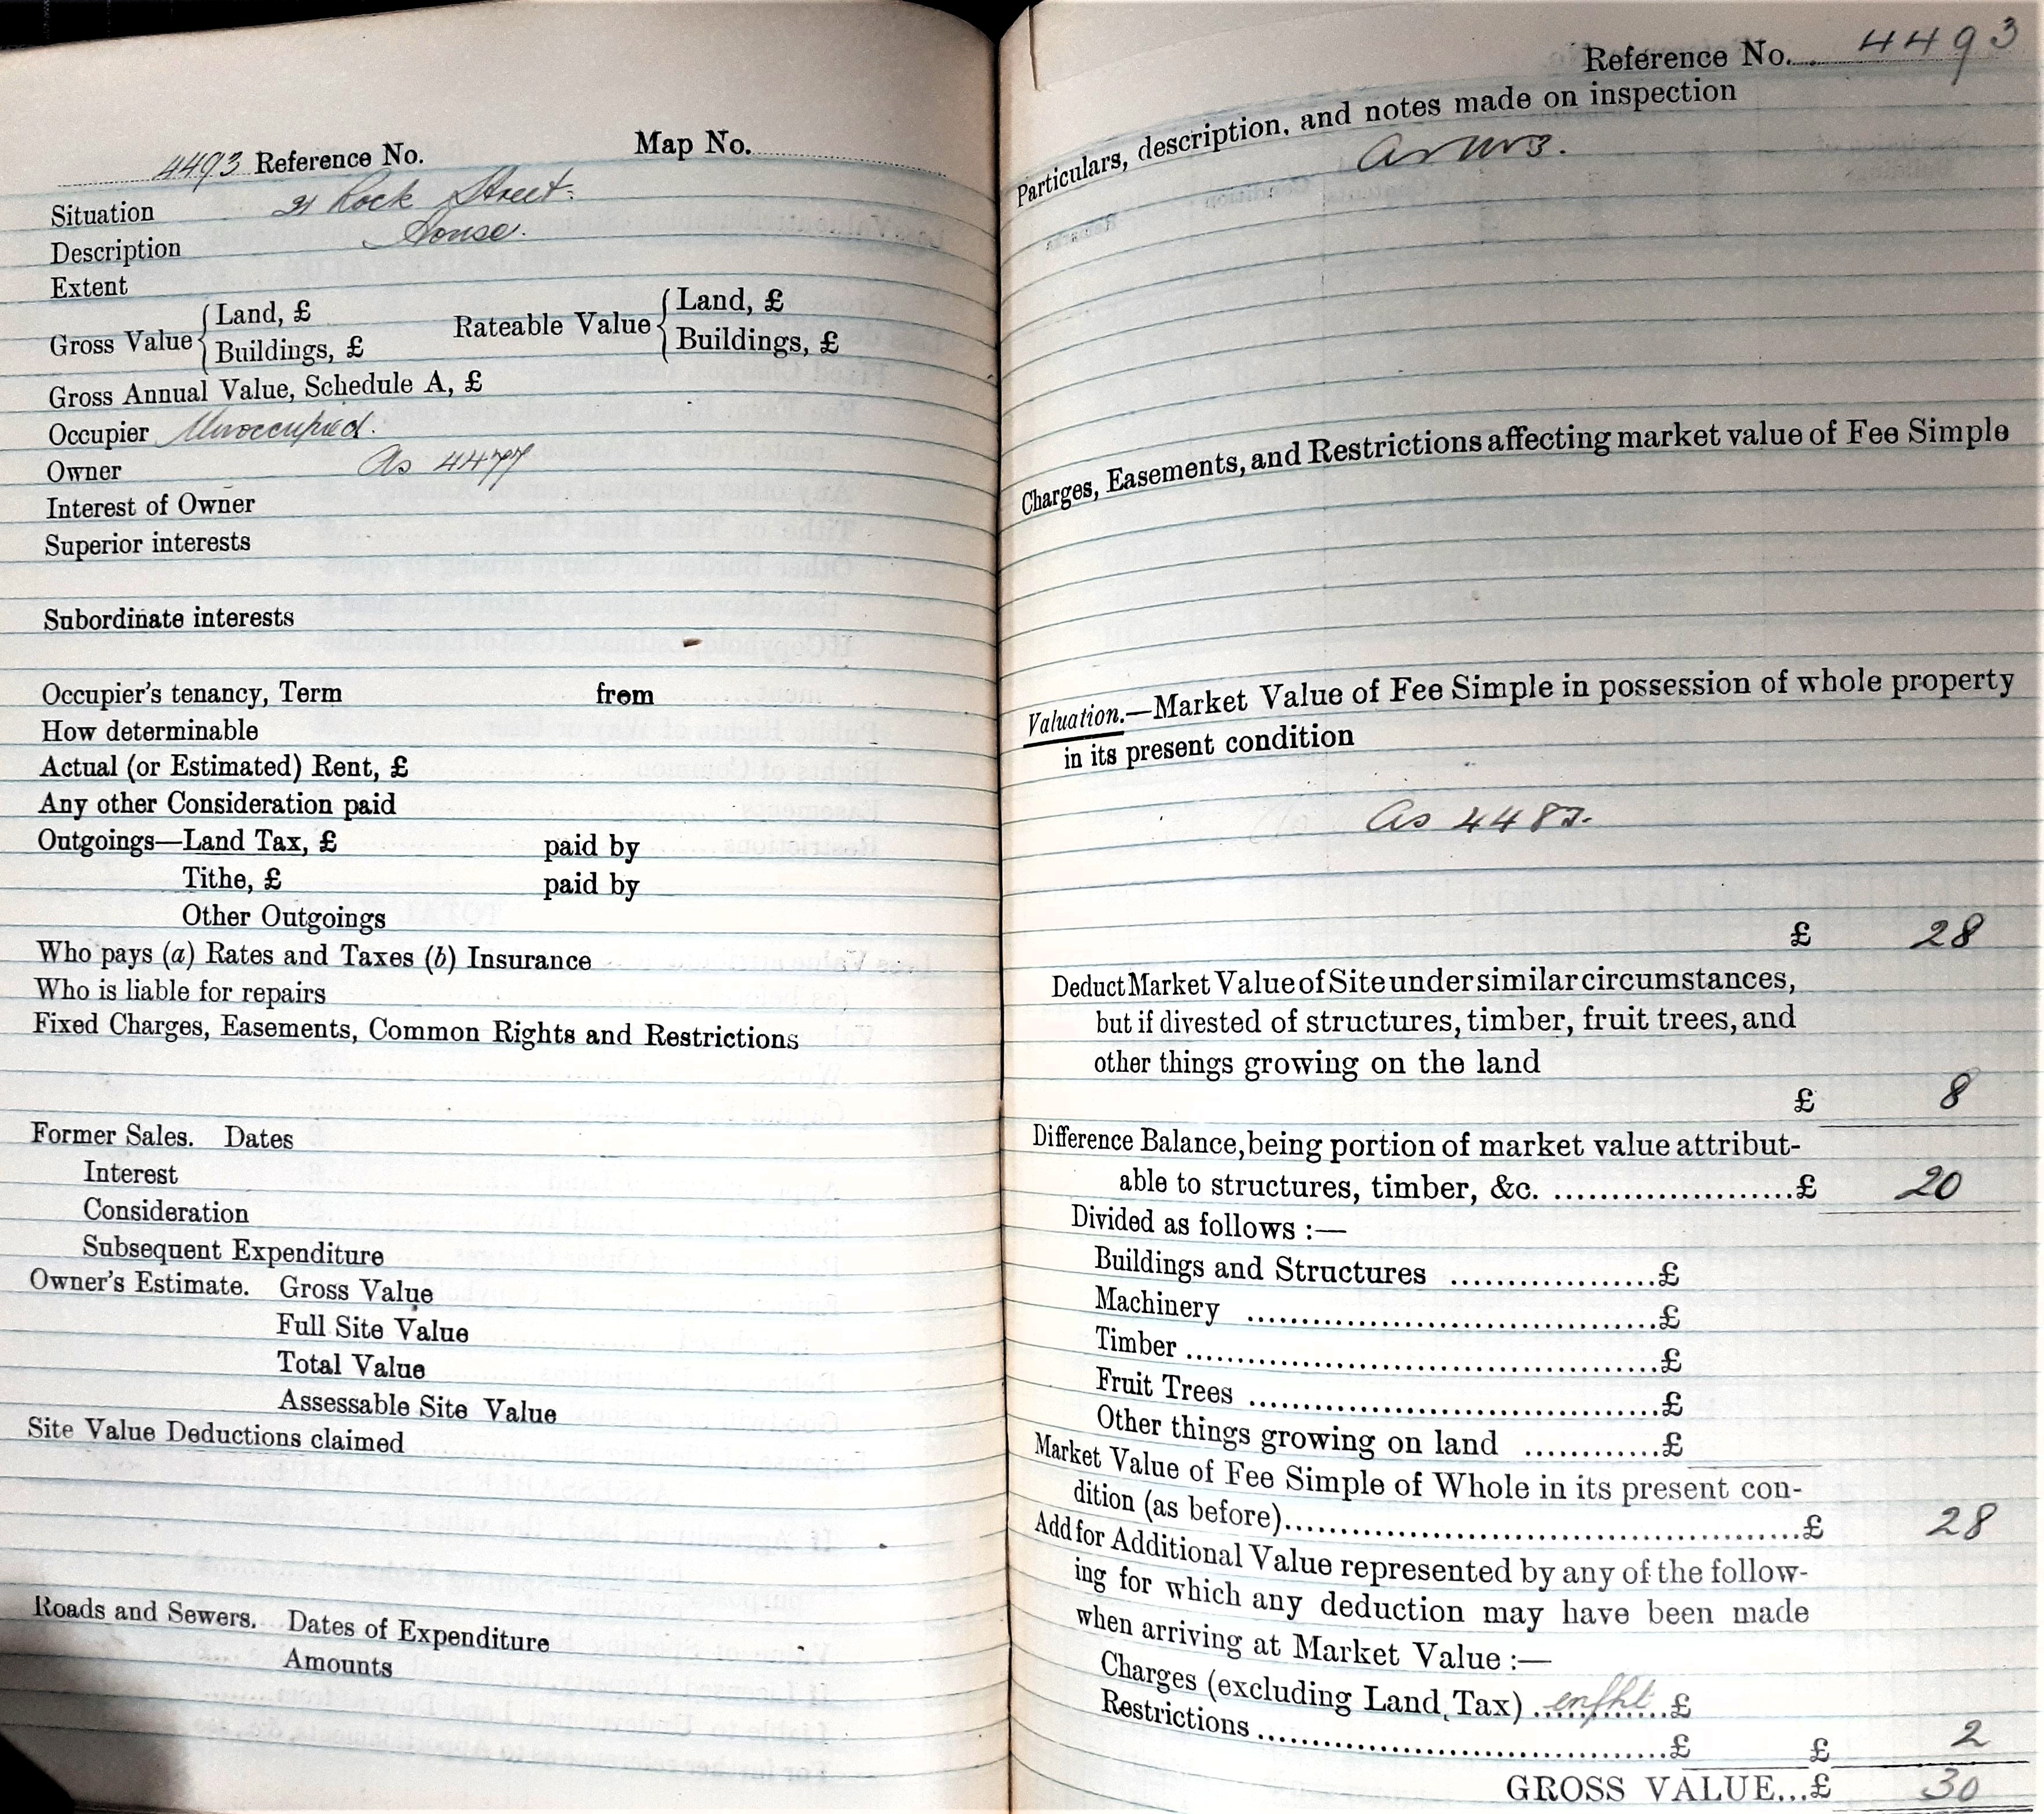 4493 Reference No. Map No.
Situation 21 Rock Street.
Description House.
Extent
Gross Value { Land, £ Rateable Value { Land, £
Buildings, £ Buildings, £
Gross Annual Value, Schedule A, £
Occupier Unoccupied.
Owner As 4477
Interest of Owner
Superior interests
Subordinate interests
Occupier's tenancy, Term from
How determinable
Actual (or Estimated) Rent, £
Any other Consideration paid
Outgoings—Land Tax, £ paid by
Tithe, £ paid by
Other Outgoings
Who pays (a) Rates and Taxes (b) Insurance
Who is liable for repairs
Fixed Charges, Easements, Common Rights and Restrictions
Former Sales. Dates
Interest
Consideration
Subsequent Expenditure
Owner's Estimate. Gross Value
Full Site Value
Total Value
Assessable Site Value
Site Value Deductions claimed
Roads and Sewers. Dates of Expenditure
Amounts
Reference No. 4493
Particulars, description, and notes made on inspection
As
Charges, Easements, and Restrictions affecting market value of Fee Simple
Valuation.—Market Value of Fee Simple in possession of whole property
in its present condition
As 4487.
£ 28
Deduct Market Value of Site under similar circumstances,
but if divested of structures, timber, fruit trees, and
other things growing on the land
£ 8
Difference Balance, being portion of market value attribut-
able to structures, timber, &c. £ 20
Divided as follows :—
Buildings and Structures £
Machinery £
Timber £
Fruit Trees £
Other things growing on land £
Market Value of Fee Simple of Whole in its present con-
dition (as before) £ 28
Add for Additional Value represented by any of the follow-
ing for which any deduction may have been made
when arriving at Market Value :—
Charges (excluding Land Tax) enfht £
Restrictions £ £ 2
GROSS VALUE...£ 30